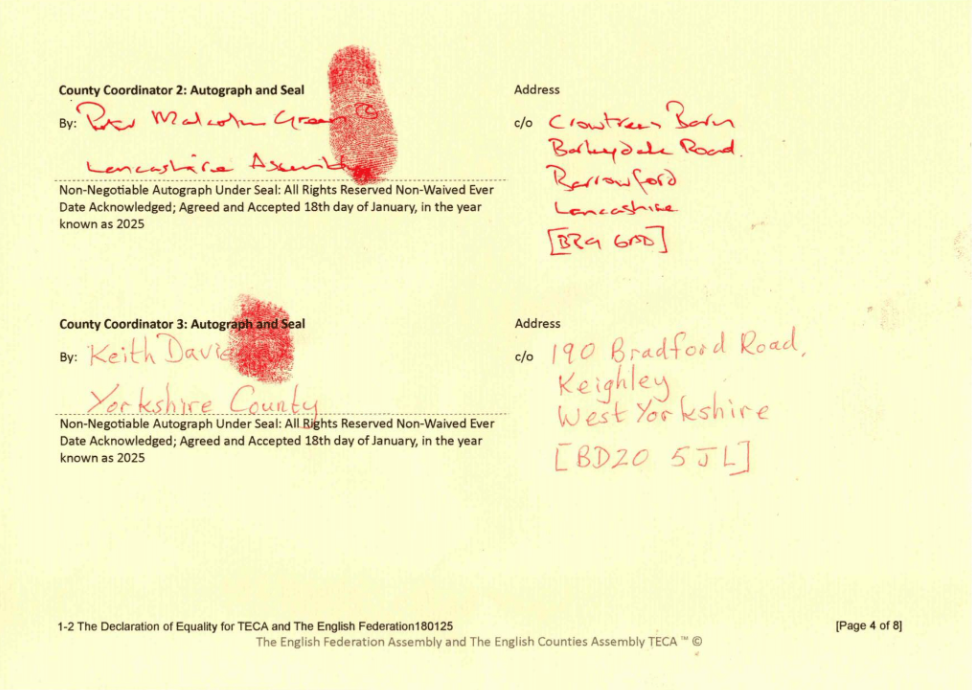 County Coordinator 2: Autograph and Seal
Address
By: Peter Malcolm Green ©
Lancashire Assembly
c/o Crowtrees Barn
Barleydale Road.
Barrowford
Lancashire
[BB9
Non-Negotiable Autograph Under Seal: All Rights Reserved Non-Waived Ever
Date Acknowledged; Agreed and Accepted 18th day of January, in the year
known as 2025
County Coordinator 3: Autograph and Seal
Address
By: Keith Davi
Yorkshire County
c/o 190 Bradford Road,
Keighley
West Yorkshire
[BD20 5JL]
Non-Negotiable Autograph Under Seal: All Rights Reserved Non-Waived Ever
Date Acknowledged; Agreed and Accepted 18th day of January, in the year
known as 2025
1-2 The Declaration of Equality for TECA and The English Federation180125
[Page 4 of 8]
The English Federation Assembly and The English Counties Assembly TECA ™ ©